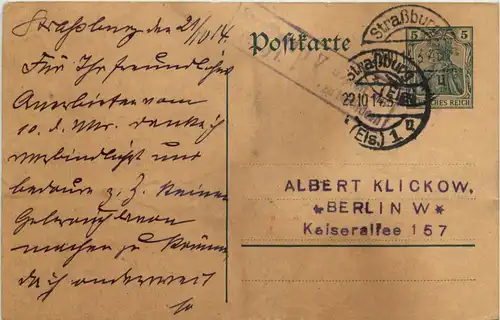 Straßburg den 21/10 14.
Für Ihr freundliches
Anerbieten vom
10. d. Mts. danke ich
verbindlichst und
bedaure z. Z. keinen
Gebrauch davon
machen zu können,
da ich anderweit
Postkarte
Straßburg
Straßburg
(Els.)
22.10.14.
(Els.) 1
5 5
DEUTSCHES REICH
ALBERT KLICKOW,
*BERLIN W*
Kaiserallee 157